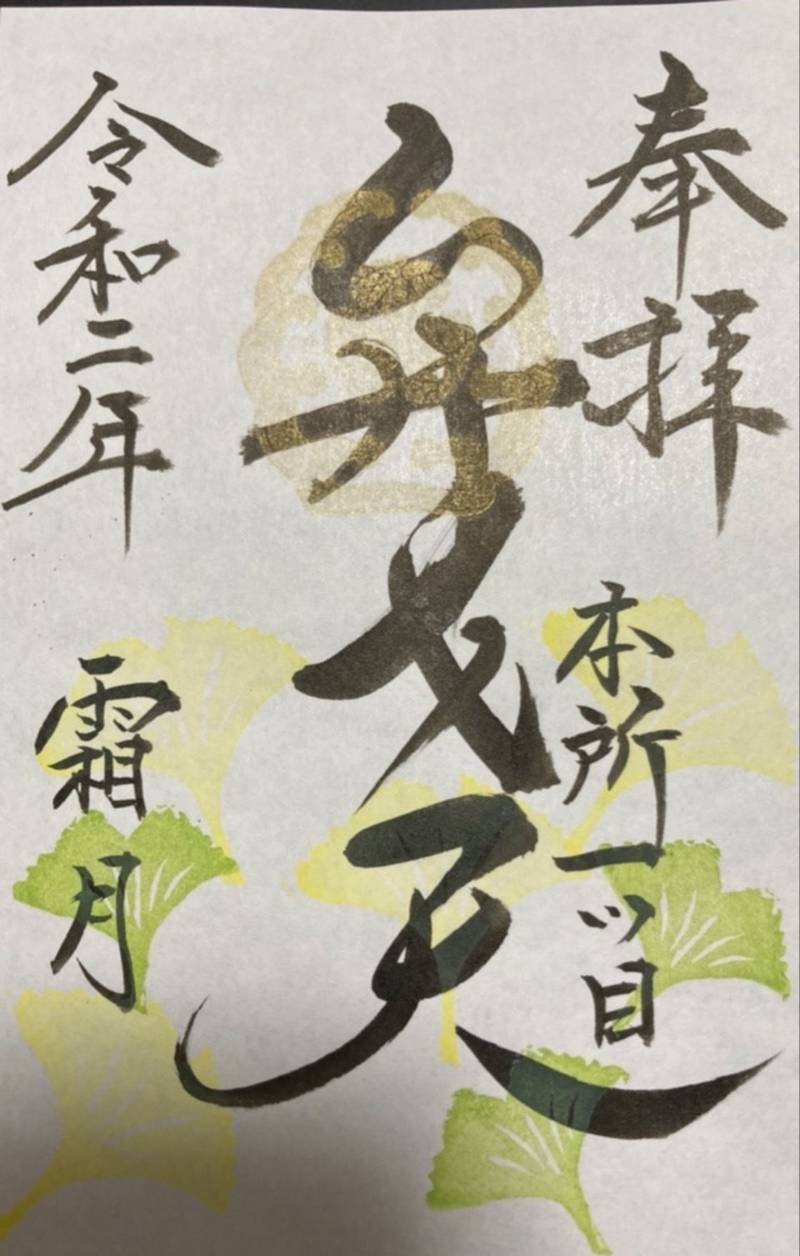 奉拝
本所一ツ目
弁才天
令和二年
霜月